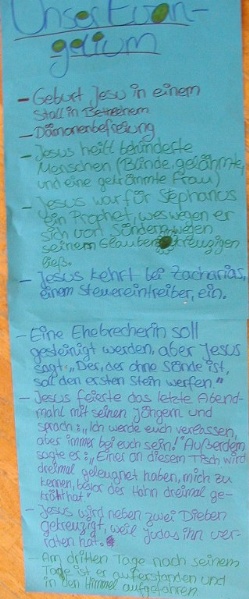 Unser Evan-
gelium
- Geburt Jesu in einem
Stall in Betlehem
- Dämonenbefreiung
- Jesus heilt behinderte
Menschen (Blinde, gelähmte,
und eine gekrümmte Frau)
- Jesus war für Stephanus
ein Prophet, weswegen er
sich von Sündern wegen
seinem Glauben kreuzigen
ließ.
- Jesus kehrt bei Zacharias,
einem Steuereintreiber, ein.
- Eine Ehebrecherin soll
gesteinigt werden, aber Jesus
sagt: „Der, der ohne Sünde ist,
soll den ersten Stein werfen."
- Jesus feierte das letzte Abend-
mahl mit seinen Jüngern und
sprach: „Ich werde euch verlassen,
aber immer bei euch sein!" Außerdem
sagte er: „Einer an diesem Tisch wird
dreimal geleugnet haben, mich zu
kennen, bevor der Hahn dreimal ge-
kräht hat"
- Jesus wird neben zwei Dieben
gekreuzigt, weil Judas ihn ver-
raten hat.
- Am dritten Tage nach seinem
Tode ist er auferstanden und
in den Himmel aufgefahren